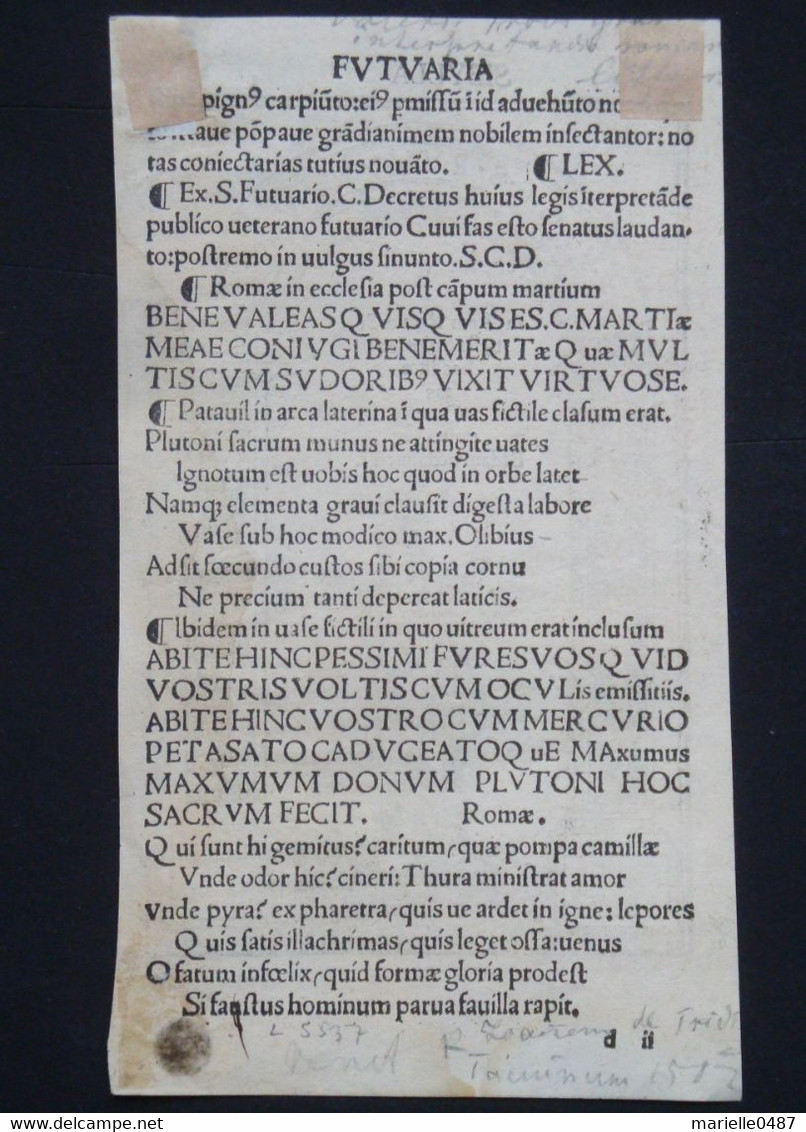 interpretandis roman
FVTVARIA
pign⁹ carpiũto:ei⁹ pmiſſũ ĩ id aduehũto no
aue põpaue grãdianimem nobilem inſectantor: no
tas coniectarias tutius nouãto. ¶LEX.
¶ Ex.S.Futuario.C.Decretus huius legis ĩterpretãde
publico ueterano futuario Cuui fas eſto ſenatus laudan.
to:poſtremo in uulgus ſinunto.S.C.D.
¶ Romæ in eccleſia poſt cãpum martium
BENE VALEAS Q VISQ VIS ES.C.MARTIæ
MEAE CONIVGI BENEMERITæ Q uæ MVL
TIS CVM SVDORIB⁹ VIXIT VIRTVOSE.
¶ Patauii in arca laterina ĩ qua uas fictile claſum erat.
Plutoni ſacrum munus ne attingite uates
Ignotum eſt uobis hoc quod in orbe latet
Namq; elementa graui clauſit digeſta labore
Vaſe ſub hoc modico max.Olibius
Ad ſit fœcundo cuſtos ſibi copia cornu
Ne precium tanti depereat laticis.
¶Ibidem in uaſe fictili in quo uitreum erat incluſum
ABITE HINC PESSIMI FVRES VOS Q VID
VOSTRIS VOLTIS CVM OCVLis emiſſitiis.
ABITE HINC VOSTRO CVM MERCVRIO
PETASATO CADVCEATOQ uE MAxumus
MAXVMVM DONVM PLVTONI HOC
SACRVM FECIT. Romæ.
Q ui ſunt hi gemitus? caritum, quæ pompa camillæ
Vnde odor hic? cineri: Thura miniſtrat amor
Vnde pyra? ex pharetra, quis ue ardet in igne: lepores
Q uis ſatis illachrimas, quis leget oſſa: uenus
O fatum infœlix, quid formæ gloria prodeſt
Si fauſtus hominum parua fauilla rapit.
L 5537 de Trid
d ii